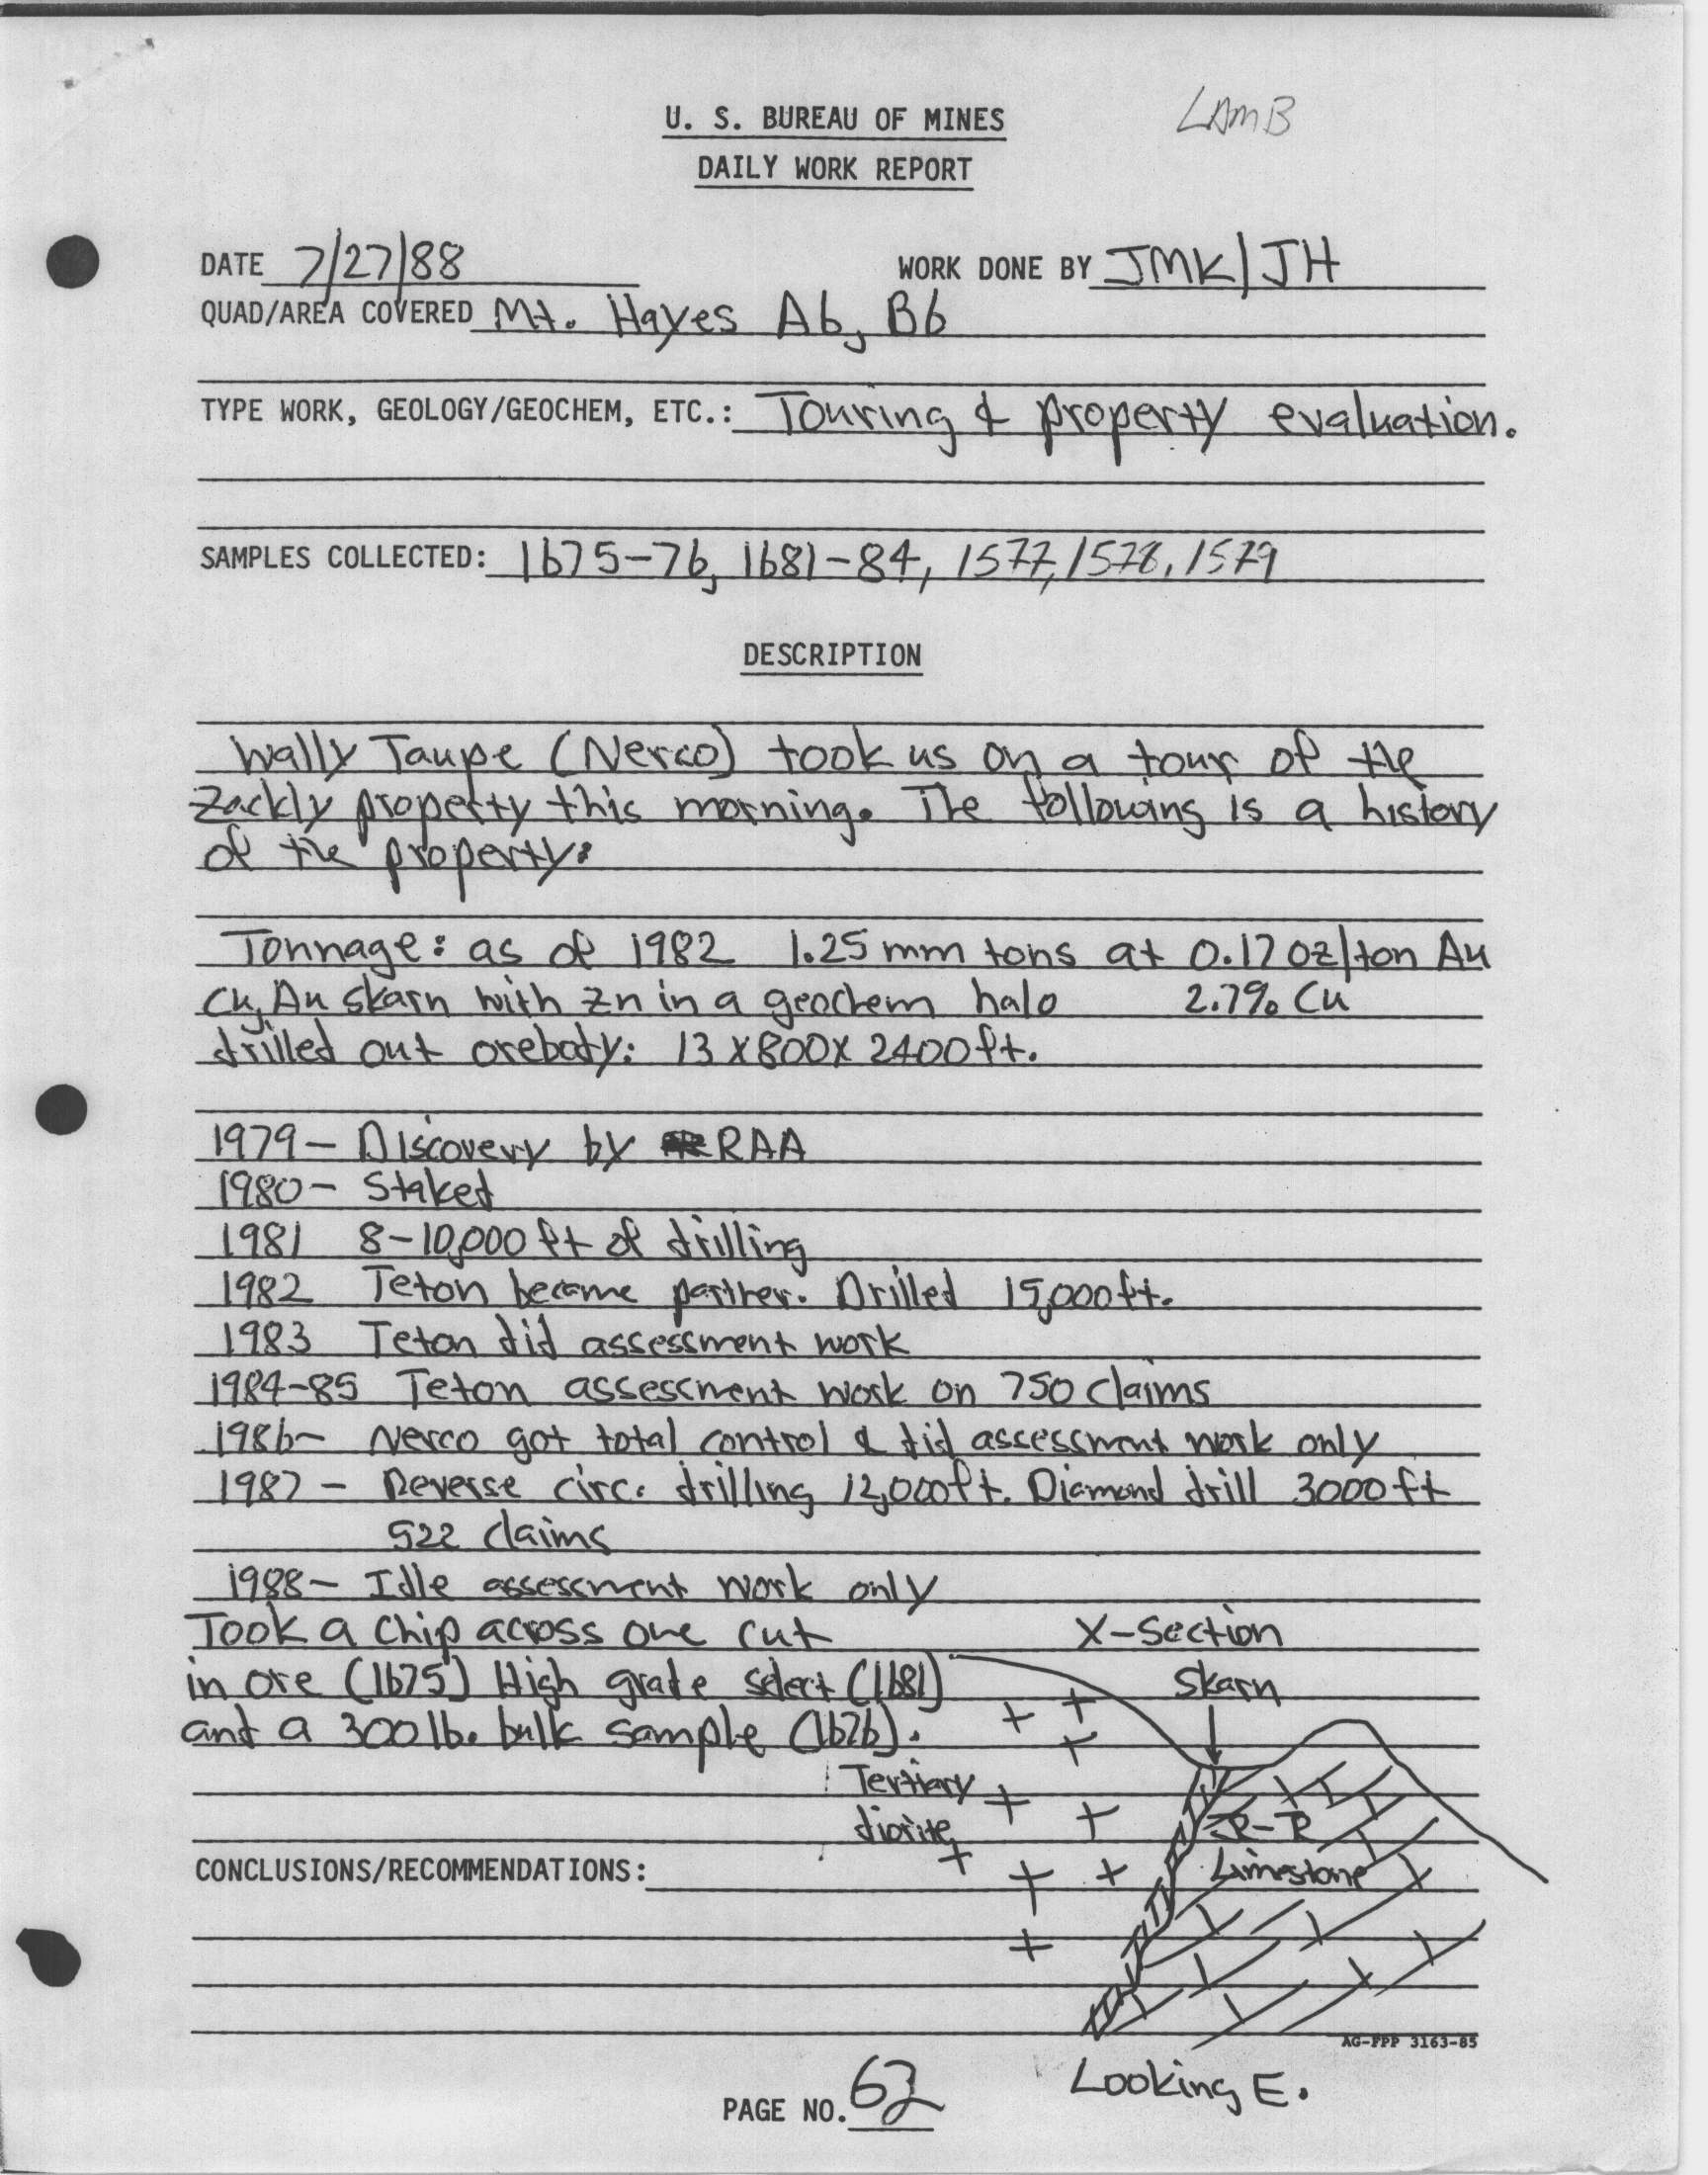 LAMB
U. S. BUREAU OF MINES
DAILY WORK REPORT
DATE 7/27/88 WORK DONE BY JMK/JH
QUAD/AREA COVERED Mt. Hayes A6, B6
TYPE WORK, GEOLOGY/GEOCHEM, ETC.: Touring & property evaluation.
SAMPLES COLLECTED: 1675-76, 1681-84, 1577, 1578, 1579
DESCRIPTION
Wally Taupe (Nerco) took us on a tour of the
Zackly property this morning. The following is a history
of the property:
Tonnage: as of 1982 1.25 mm tons at 0.17 oz/ton Au
Cu, Au skarn with Zn in a geochem halo 2.7% Cu
drilled out orebody: 13 x 800 x 2400 ft.
1979 - Discovery by RAA
1980 - Staked
1981 8-10,000 ft of drilling
1982 Teton became partner. Drilled 15,000 ft.
1983 Teton did assessment work
1984-85 Teton assessment work on 750 claims
1986- Nerco got total control & did assessment work only
1987 - Reverse circ. drilling 12,000 ft. Diamond drill 3000 ft
522 claims
1988- Idle assessment work only
Took a chip across one cut
in ore (1675) High grade select (1681)
and a 300 lb. bulk sample (1676).
X-Section
Skarn
Tertiary
diorite
Limestone
CONCLUSIONS/RECOMMENDATIONS:
AG-FPP 3163-85
Looking E.
PAGE NO. 62